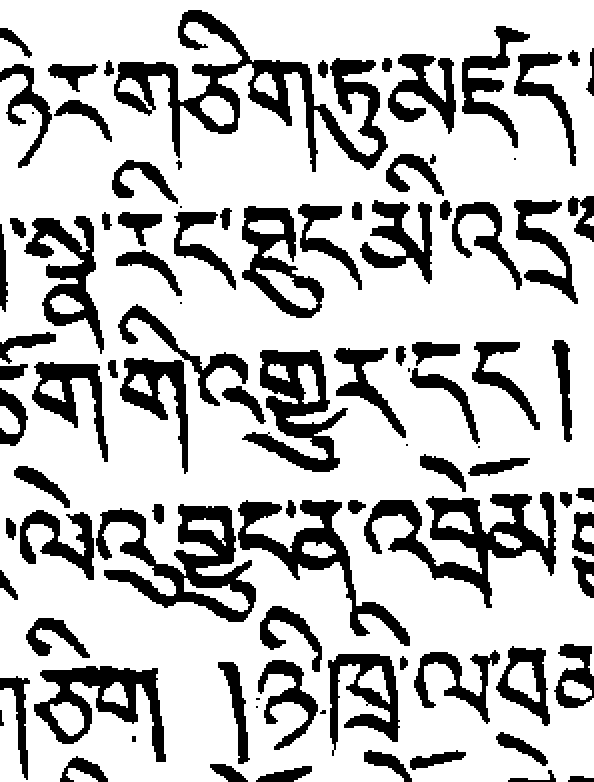 ཉེར་གཅིག་ཏུ་མཛད་
།་སྣ་རིང་ཐུང་མི་འདྲ་
ཅོག་གི་འགྱུར་དང།
་ལེའུ་བྱུང་ན་འབྲོམ་
གཅིག །ཉི་ཁྲི་ལ་བན